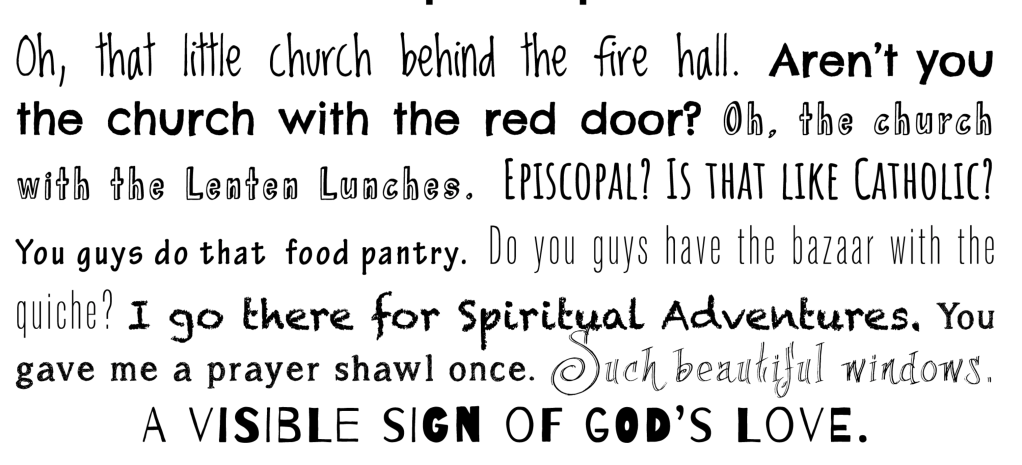 Oh, that little church behind the fire hall. Aren't you
the church with the red door? Oh, the church
with the Lenten Lunches. Episcopal? Is that like Catholic?
You guys do that food pantry. Do you guys have the bazaar with the
quiche? I go there for Spiritual Adventures. You
gave me a prayer shawl once. Such beautiful windows.
A VISIBLE SIGN OF GOD'S LOVE.